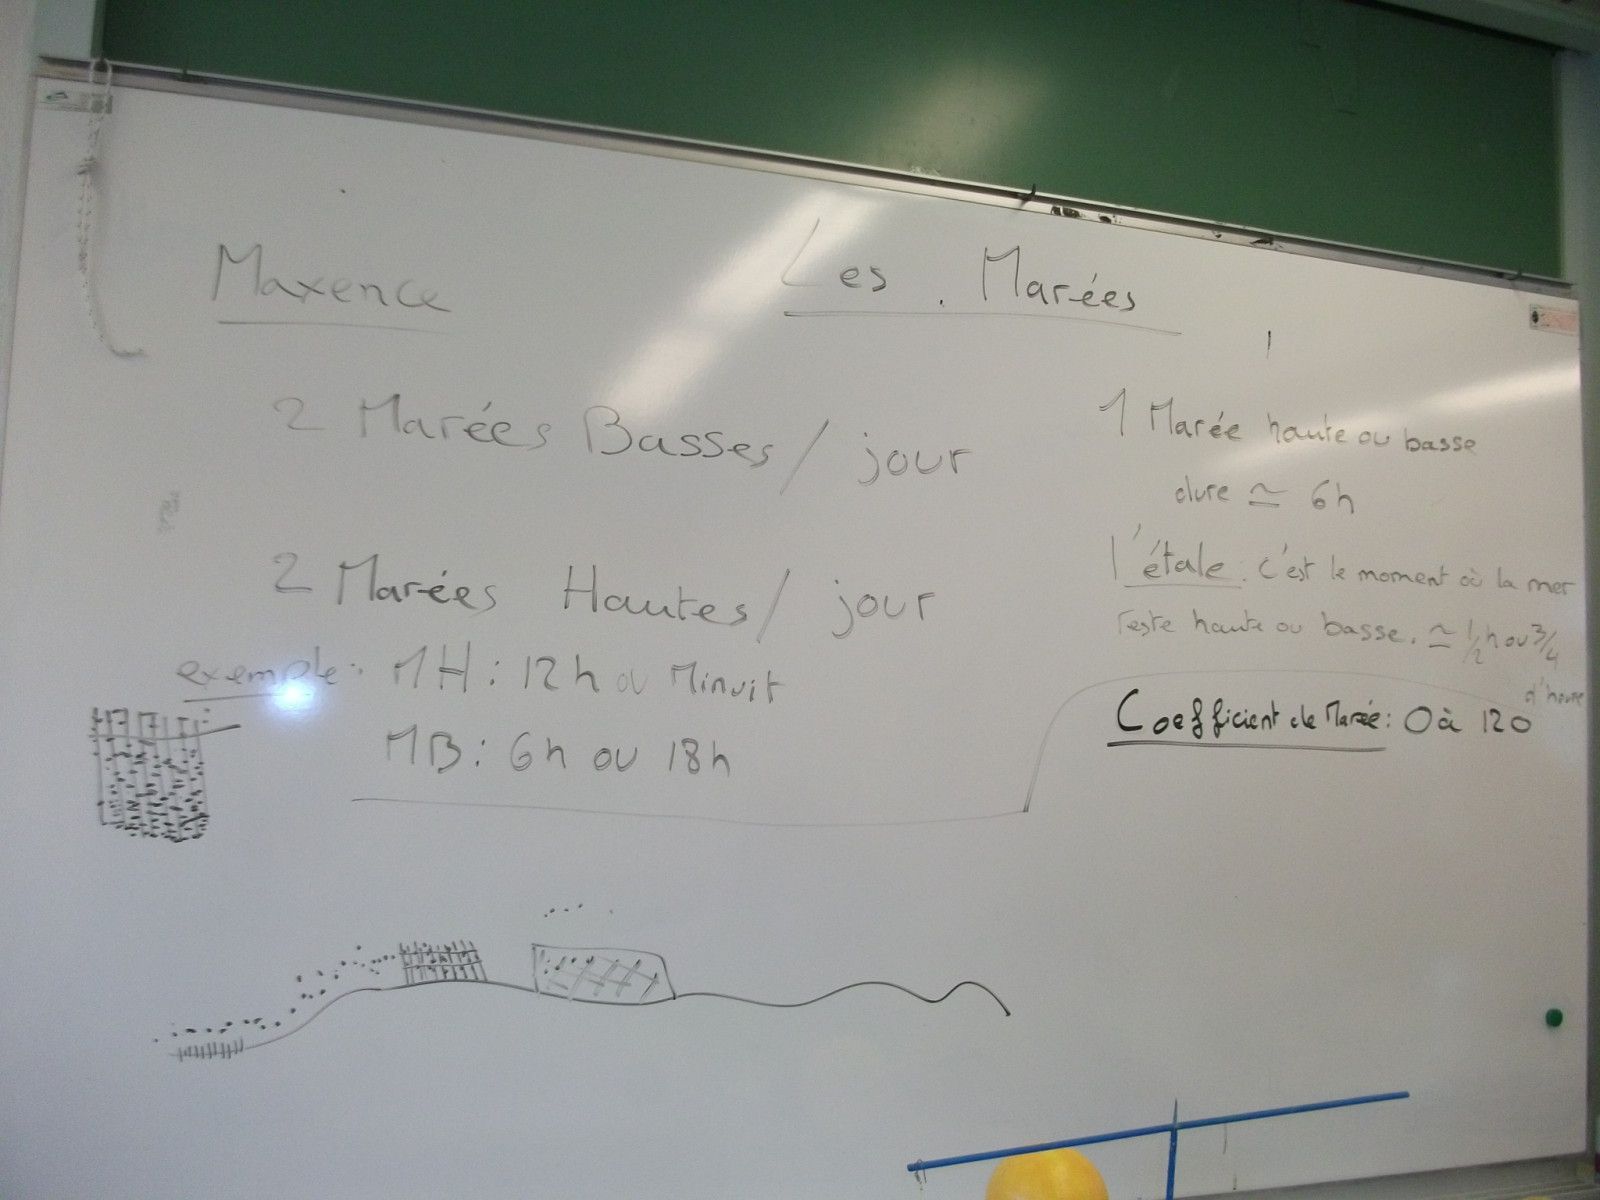 Maxence
Les Marées
2 Marées Basses / jour
2 Marées Hautes / jour
exemple: MH : 12h ou Minuit
MB : 6h ou 18h
1 Marée haute ou basse
dure ≃ 6h
l'étale : c'est le moment où la mer
reste haute ou basse. ≃ 1/2 h ou 3/4
d'heure
Coefficient de Marée : 0 à 120